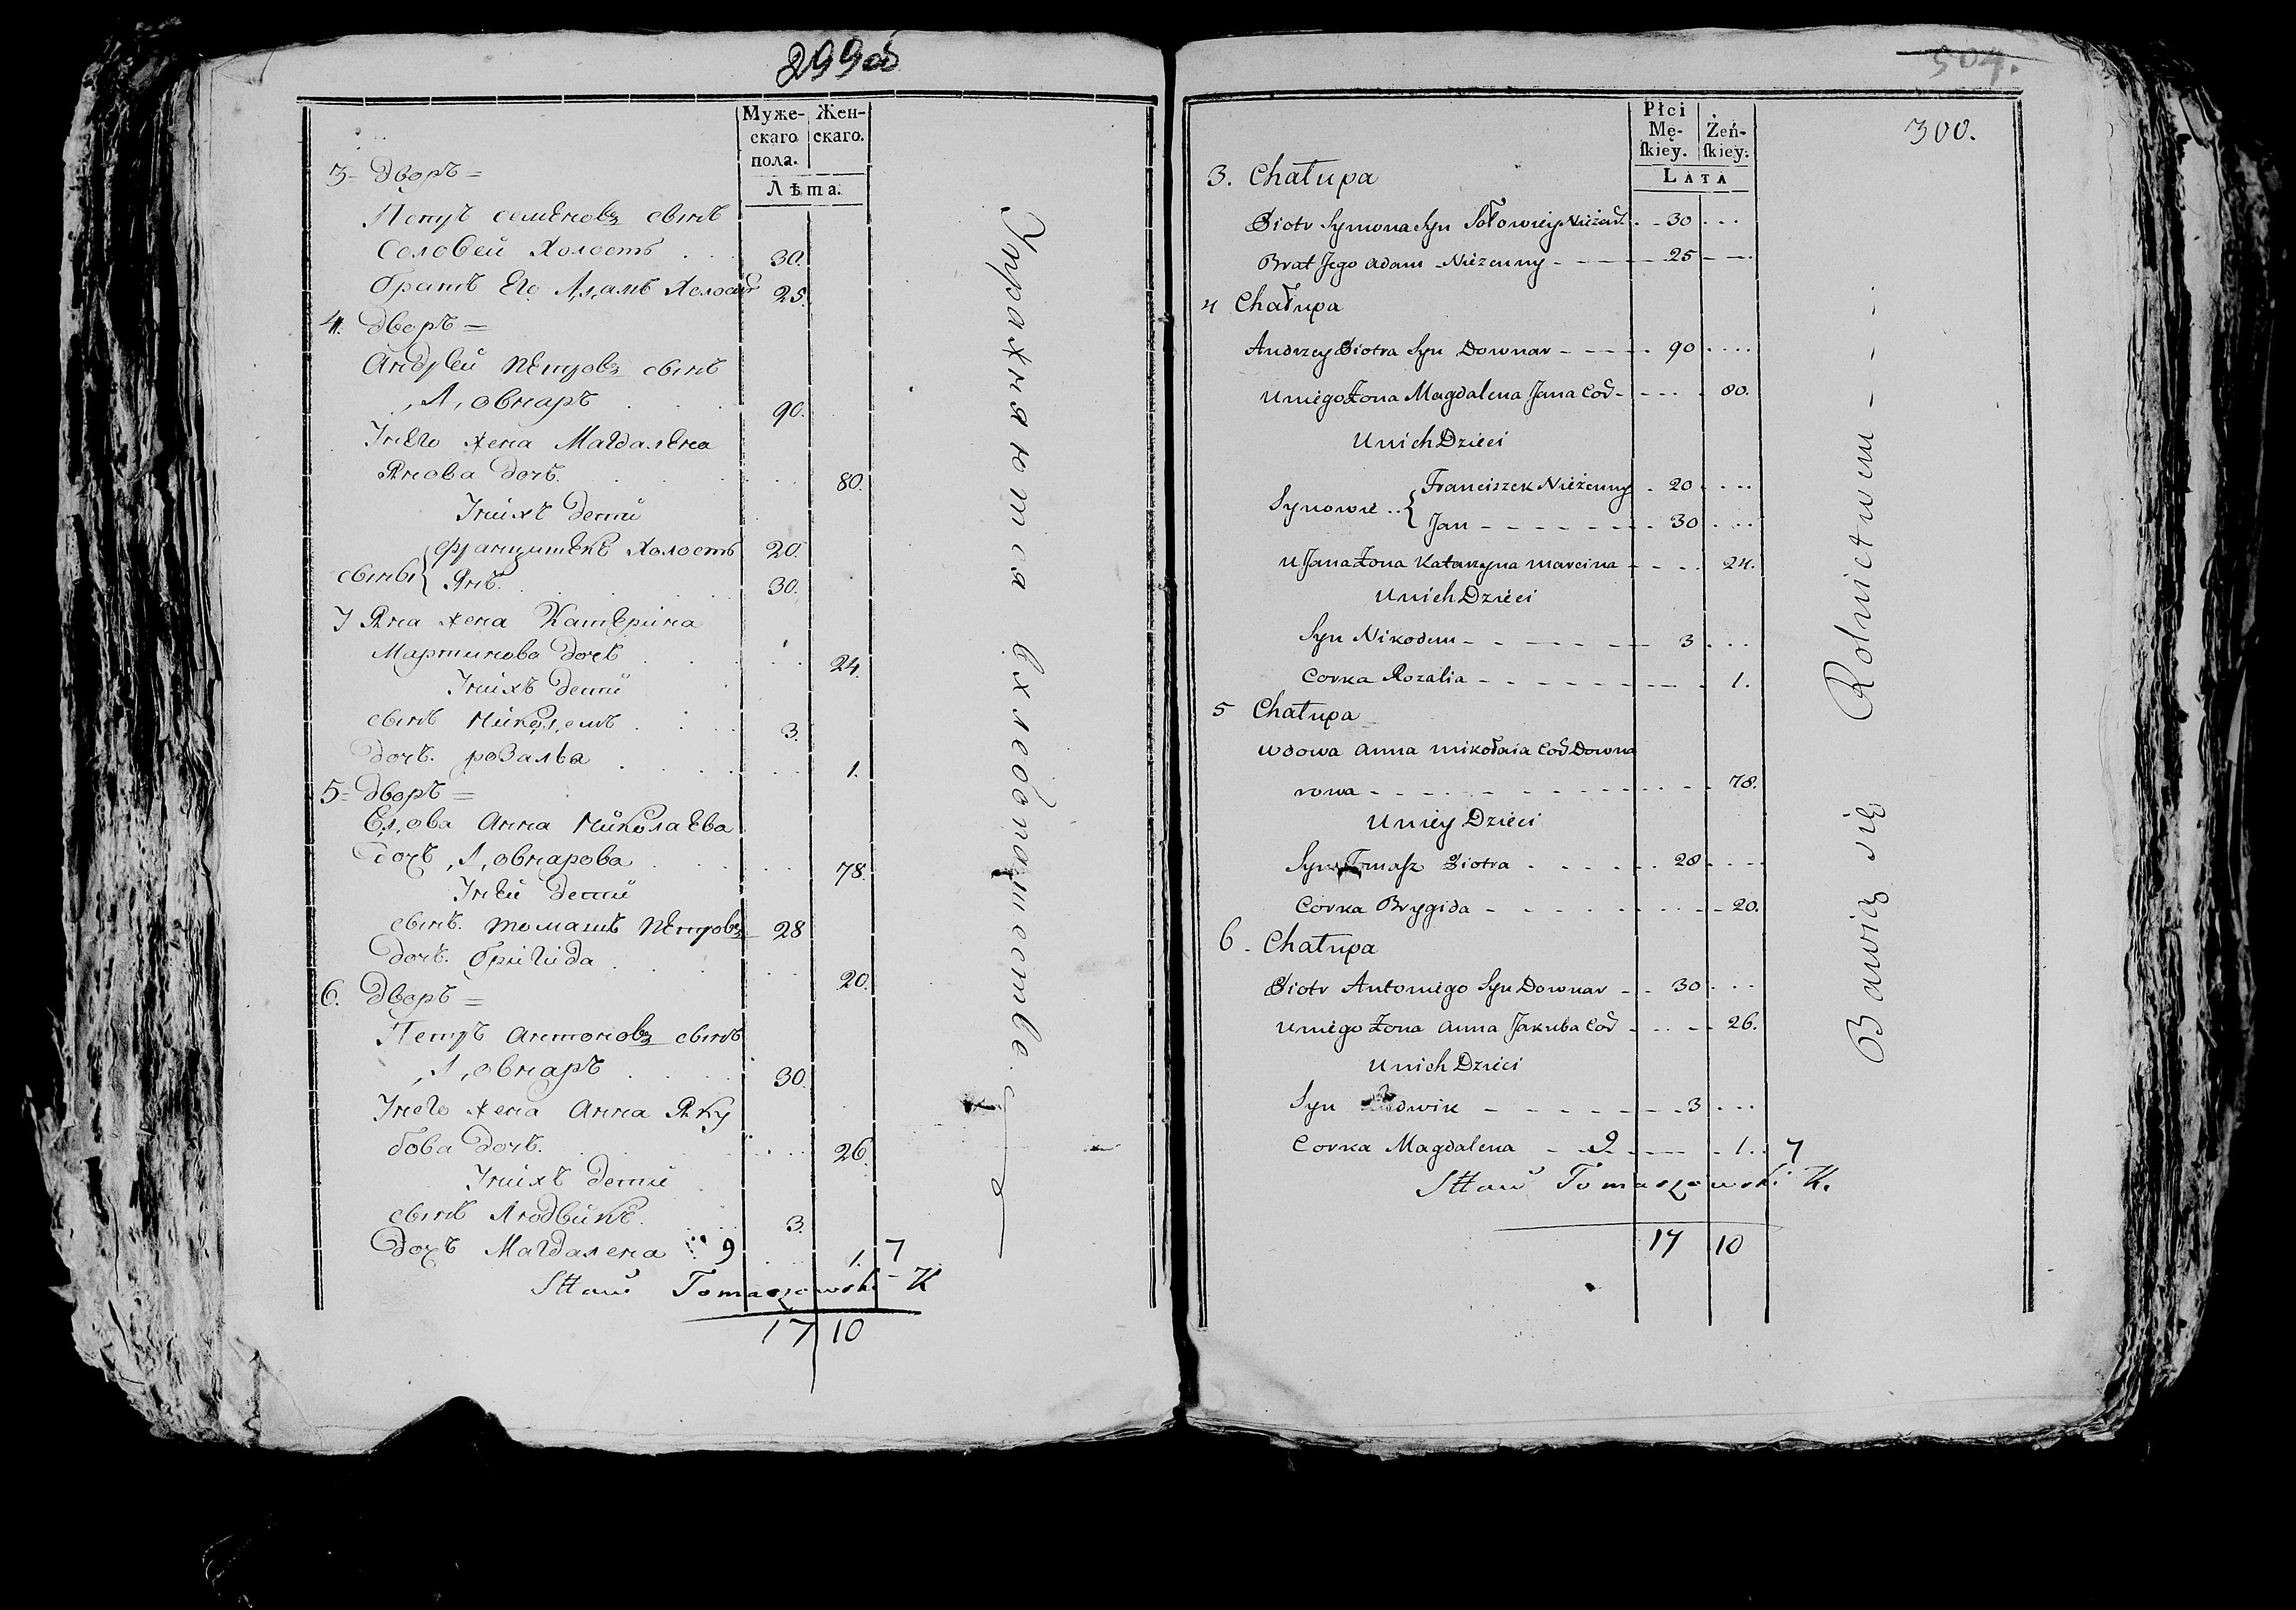 299об
Муже-
скаго
пола.
Жен-
скаго.
Лѣта.
3= Дворъ =
Петръ Семеновъ сынъ
Соловей Холостъ . . 30.
Братъ Его Адамъ Холостъ 25.
4. Дворъ =
Андрей Петровъ сынъ
Довнаръ . . . 90.
У него жена Магдалена
Янова дочь . . . 80.
У нихъ дети
сыны { Францишекъ Холостъ 20.
Янъ . . . 30.
У Яна жена Катерина
Мартинова дочь . . . 24.
У нихъ дети
сынъ Никодемъ . . . 3.
дочь. розалья . . . 1.
5= Дворъ =
Вдова Анна Николаева
дочь Довнарова . . . 78.
У ней дети
сынъ. томашъ Петровъ 28
дочь. бригида . . . 20.
6. Дворъ =
Петръ Антоновъ сынъ
Довнаръ . . . 30.
У него жена Анна Яку
бова дочь. . . . 26.
У нихъ дети
сынъ Людвикъ. . . 3.
дочь Магдалена 9 . . 1. 7
Tomaszowski K
17 10
Упражняются в хлебопашестве.
504.
300.
Płci
Mę-
skiey.
Żeń-
skiey.
LATA
3. Chałupa
Piotr Symona Syn Sołowiey Nieżon. . - 30 . . .
Brat Jego Adam Nieżenny - - - - 25 - - .
4 Chałupa
Andrzey Piotra Syn Downar - - - - . 90 . . . .
U niego Żona Magdalena Jana Cod - - . . . 80.
U nich Dzieci
Synowie .. { Franciszek Nieżenny . 20 . . . .
Jan - - - - - - - . 30 . . .
U Jana Żona Katarzyna Marcina - - . . 24.
U nich Dzieci
Syn Nikodem - - - - - - - 3 . . .
Corka Rozalia - - - - - - - - . 1.
5 Chałupa
Wdowa Anna Mikołaia Cod Downa
rowa - - - - - - - - - - 78.
U niey Dzieci
Syn Tomasz Piotra . . . . . . 28 . . . .
Corka Brygida - - - - . . . - - 20.
6 . Chałupa
Piotr Antoniego Syn Downar - . 30 . . .
U niego Żona Anna Jakuba Cod - . . - 26.
U nich Dzieci
Syn Ludwik - - - - - - . 3 . . .
Corka Magdalena - 9 - - - . 1 . . 7
Tomaszowski K.
17 10
Bawią się Rolnictwem - - - -